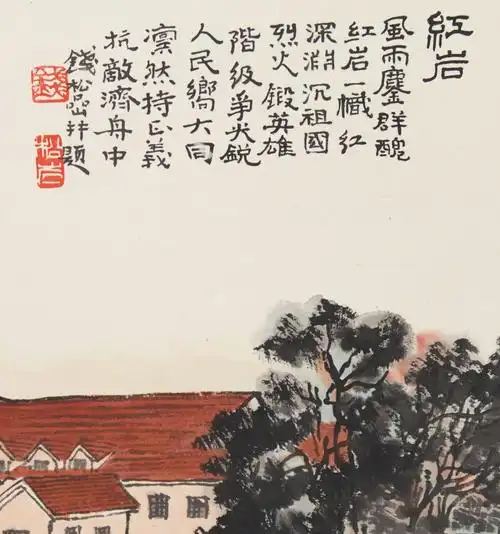 紅岩
風雨鏖群醜
紅岩一幟紅
深淵沉祖國
烈火鍛英雄
階級爭尖銳
人民嚮大同
凜然持正義
抗敵濟舟中
錢松喦并題